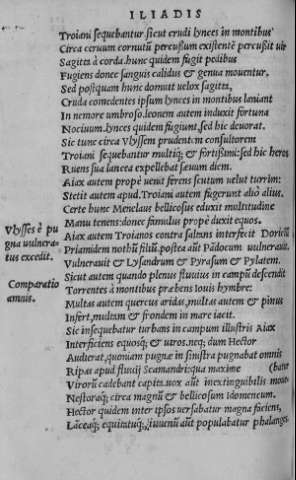 ILIADIS
Troiani sequebantur sicut crudi lynces in montibus
Circa ceruum cornutũ percussum existentẽ percussit uir
Sagitta à corda. hunc quidem fugit pedibus
Fugiens donec sanguis calidus & genua mouentur,
Sed postquam hunc domuit uelox sagitta,
Cruda comedentes ipsum lynces in montibus laniant
In nemore umbroso. leonem autem induxit fortuna
Nociuum. lynces quidem fugiunt, sed hic deuorat.
Sic tunc circa Vlyssem prudentem consultorem
Troiani sequebantur multiq; & fortissimi: sed hic heros
Ruens sua lancea expellebat sæuum diem.
Aiax autem propè uenit ferens scutum uelut turrim:
Stetit autem apud. Troiani autem fugerunt aliò alius.
Certe hunc Menelaus bellicosus eduxit multitudine
Manu tenens: donec famulus propè duxit equos.
Vlysses è pu
gna uulnera-
tus excedit.
Aiax autem Troianos contra saliens interfecit Doriclũ
Priamidem nothũ filiũ. postea aũt Pãdocum uulnerauit.
Vulnerauit & Lysandrum & Pyrasum & Pylatem.
Sicut autem quando plenus fluuius in campũ descendit
Comparatio
amnis.
Torrentes à montibus præbens Iouis hymbre:
Multas autem quercus aridas, multas autem & pinus
Infert, multam & frondem in mare iacit.
Sic insequebatur turbans in campum illustris Aiax
Interficiens equosq; & uiros. neq; dum Hector
Audierat, quoniam pugnæ in sinistra pugnabat omnis
Ripas apud fluuij Scamandri: qua maxime (bant
Virorũ cadebant capita. uox aũt inextinguibilis mota
Nestoraq; circa magnũ & bellicosum Idomeneum.
Hector quidem inter ipsos uersabatur magna faciens,
Lãceaq; equitatuq;, iuuenũ aũt populabatur phalanges